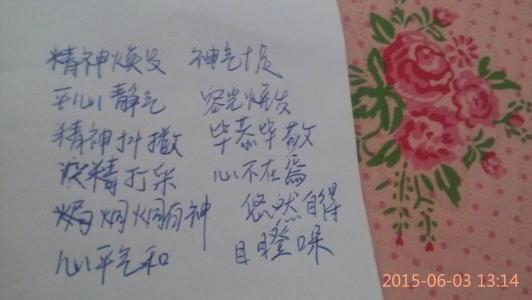 精神焕发 神气十足
平心静气 容光焕发
精神抖擞 毕恭毕敬
没精打采 心不在焉
炯炯有神 悠然自得
心平气和 目瞪口呆
2015-06-03 13:14